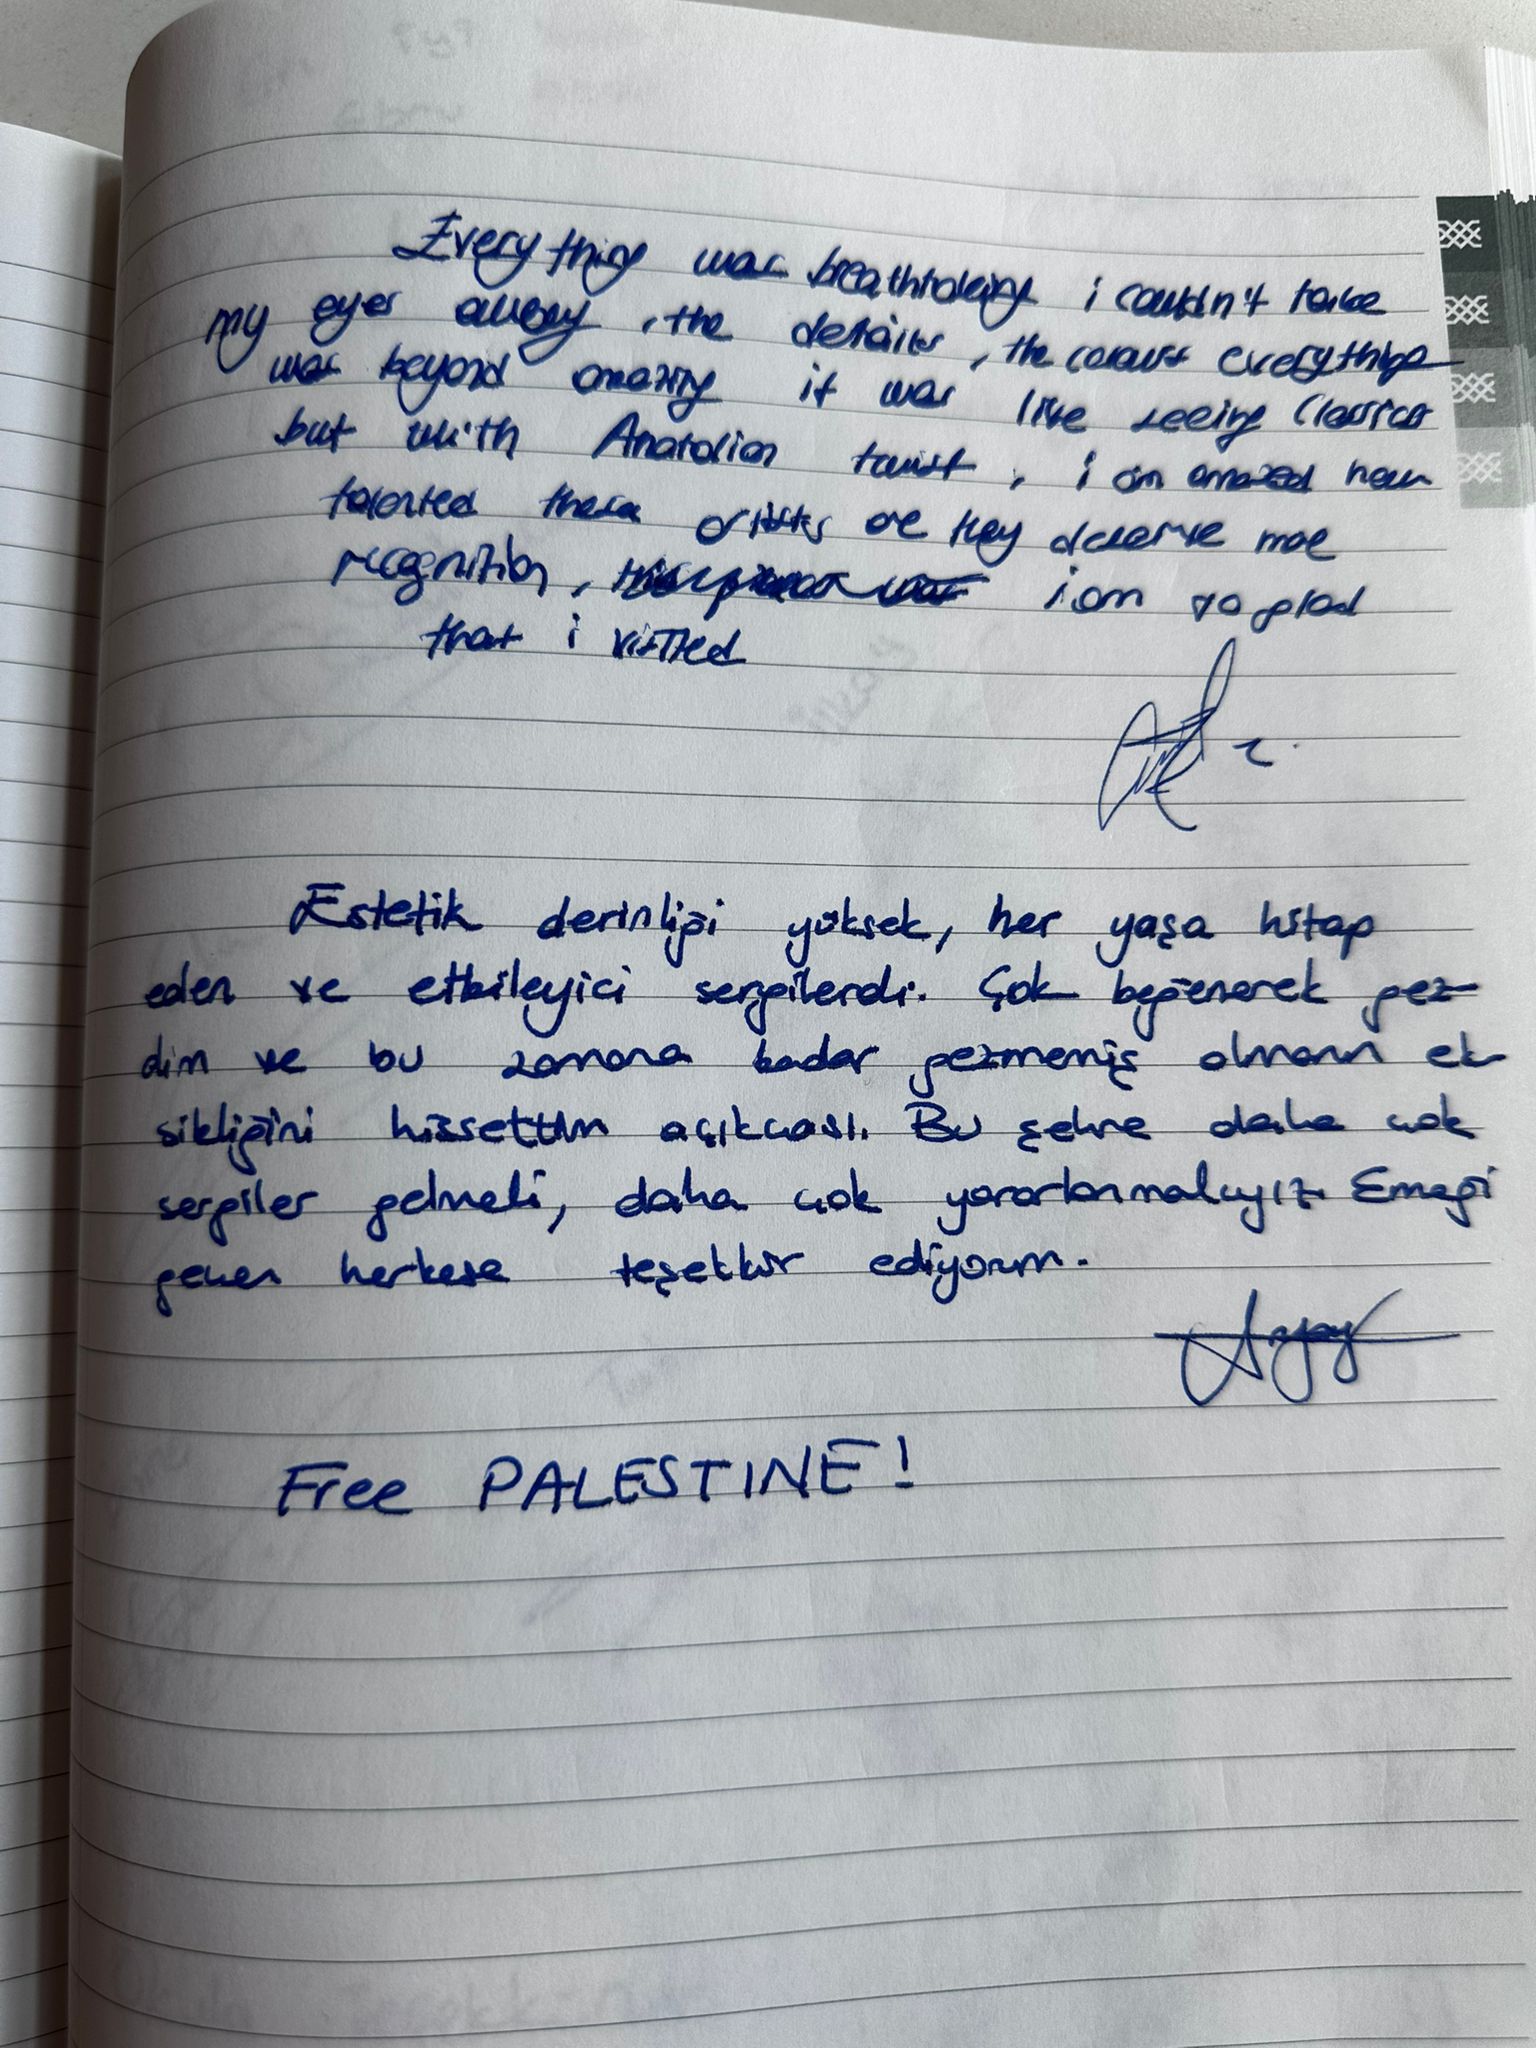 Everything was breathtaking i couldn't take
my eyes away, the details, the colours everything
was beyond amazing it was like seeing Classics
but with Anatolian twist, i am amazed how
talented these artists are they deserve more
recognition, i am so glad
that i visited
Estetik derinliği yüksek, her yaşa hitap
eden ve etkileyici sergilerdi. Çok beğenerek gez-
dim ve bu zamana kadar gezmemiş olmanın ek
sikliğini hissettim açıkçası. Bu şehre daha çok
sergiler gelmeli, daha çok yararlanmalıyız. Emeği
geçen herkese teşekkür ediyorum.
Free PALESTINE!